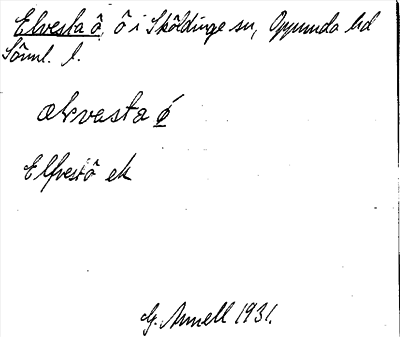 Elvesta ô, ô i Sköldinge sn, Oppunda hd
Sörml. l.
ælvasta ǿ
Elfvestö ek
G. Annell 1931.